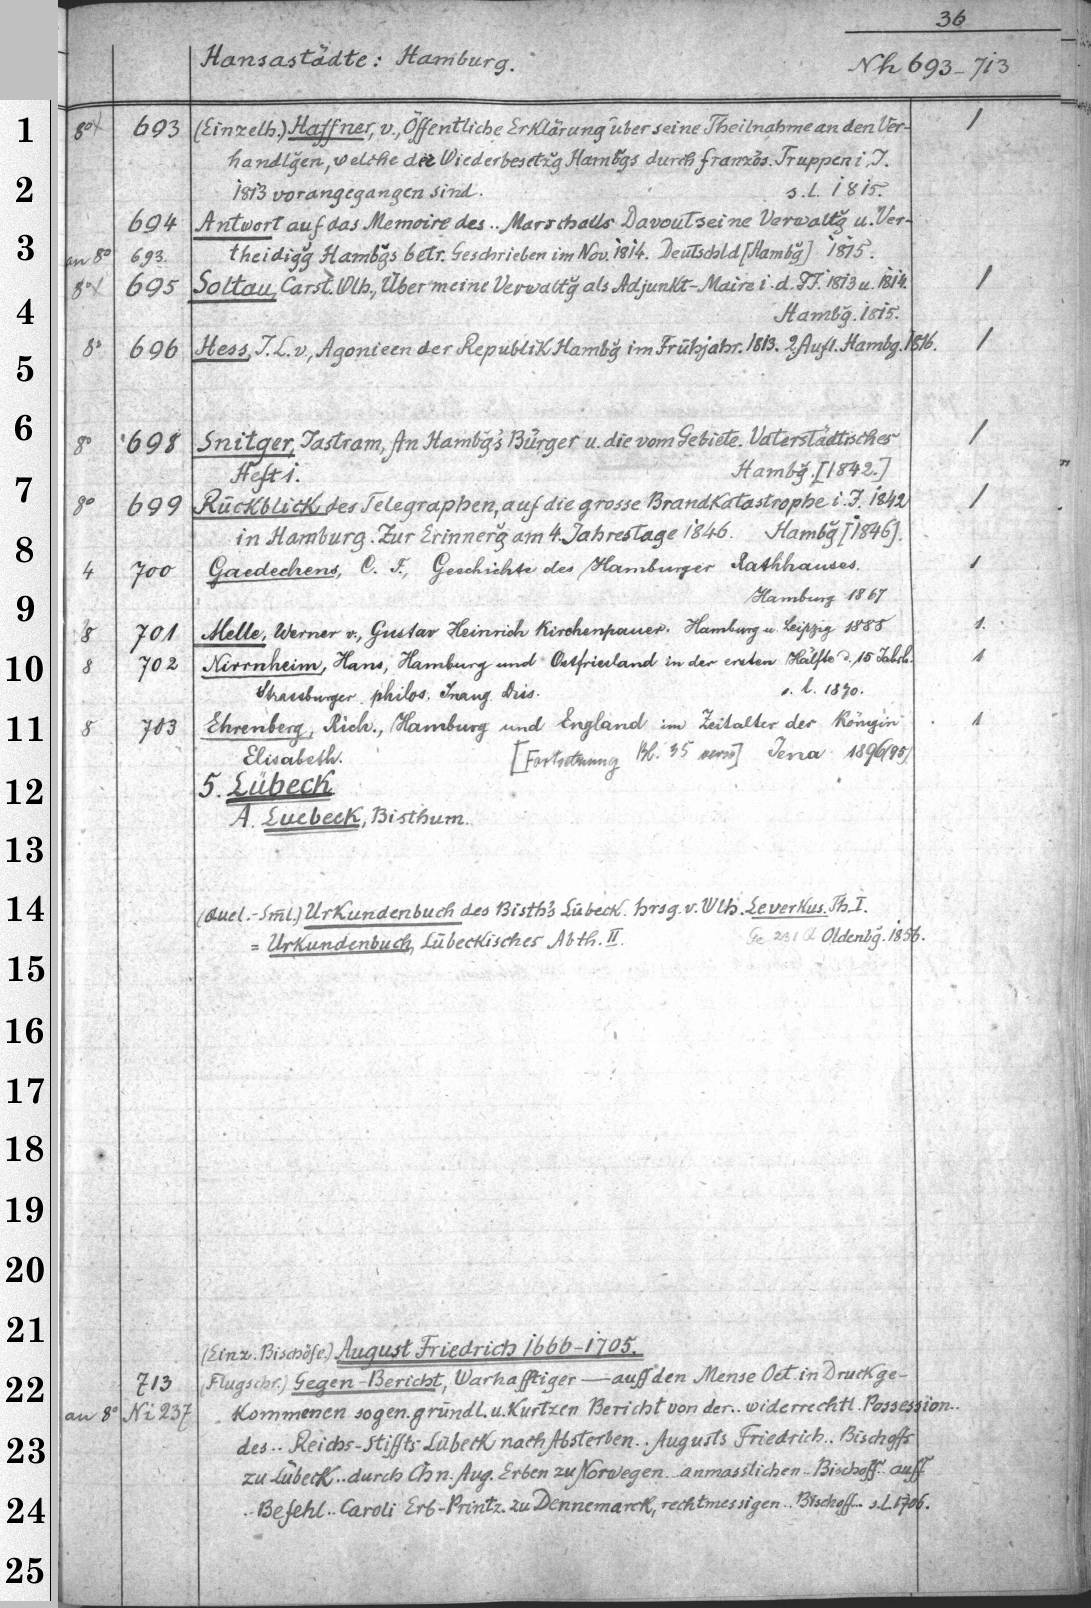 36
Hansastädte: Hamburg. Nh 693-713
1 8° 693 (Einzelh.) Haffner, v., Öffentliche Erklärung über seine Theilnahme an den Ver- 1
handlg̃en, welche der Wiederbesetzg̃ Hambg̃s durch französ. Truppen i. J.
2 1813 vorangegangen sind. s. l. 1815.
694 Antwort auf das Memoire des .. Marschalls Davout seine Verwaltg̃ u. Ver-
3 an 8° 693. theidigg̃ Hambg̃s betr. Geschrieben im Nov. 1814. Deutschld [Hambg̃] 1815.
8° 695 Soltau, Carst. Wlh., Über meine Verwaltg̃ als Adjunkt-Maire i. d. JJ. 1813 u. 1814. 1
4 Hambg̃. 1815.
8° 696 Hess, J. L. v., Agonieen der Republik Hambg̃ im Frühjahr. 1813. 2. Aufl. Hambg. 1816. 1
5
6 8° 698 Snitger, Jastram, An Hambg̃'s Bürger u. die vom Gebiete. Vaterstädtisches 1
Heft 1. Hambg̃. [1842.]
7 8° 699 Rückblick des Telegraphen, auf die grosse Brandkatastrophe i. J. 1842 1
8 in Hamburg. Zur Erinnerg̃ am 4. Jahrestage 1846. Hambg̃ [1846].
4 700 Gaedechens, C. F., Geschichte des Hamburger Rathhauses. 1
9 Hamburg 1867
8 701 Melle, Werner v., Gustav Heinrich Kirchenpauer. Hamburg u. Leipzig 1888 1.
10 8 702 Nirrnheim, Hans, Hamburg und Ostfriesland in der ersten Hälfte d. 15 Jahrh. 1
Strassburger philos. Inaug. Diss. s. l. 1890.
11 8 703 Ehrenberg, Rich., Hamburg und England im Zeitalter der Königin 1
Elisabeth. [Fortsetzung Bl. 35 verso] Jena 1896(95)
12 5. Lübeck
A. Luebeck, Bisthum.
13
14 (Quel.-Sml.) Urkundenbuch des Bisth's Lübeck. hrsg. v. Wlh. Leverkus. Th. I.
= Urkundenbuch, Lübeckisches Abth. II. Ge 231 Oldenbg̃. 1856.
15
16
17
18
19
20
21 (Einz. Bischöfe.) August Friedrich 1666-1705.
22 713 (Flugschr.) Gegen-Bericht, Warhafftiger — auff den Mense Oct. in Druck ge-
an 8° Ni 237 kommenen sogen. gründl. u. kurtzen Bericht von der .. widerrechtl. Possession..
23 des .. Reichs-Stiffts Lübeck nach Absterben .. Augusts Friedrich .. Bischoffs
zu Lübeck .. durch Chn. Aug. Erben zu Norwegen .. anmasslichen .. Bischoff .. auff
24 .. Befehl .. Caroli Erb-Printz. zu Dennemarck, rechtmessigen .. Bischoff .. s. l. 1706.
25